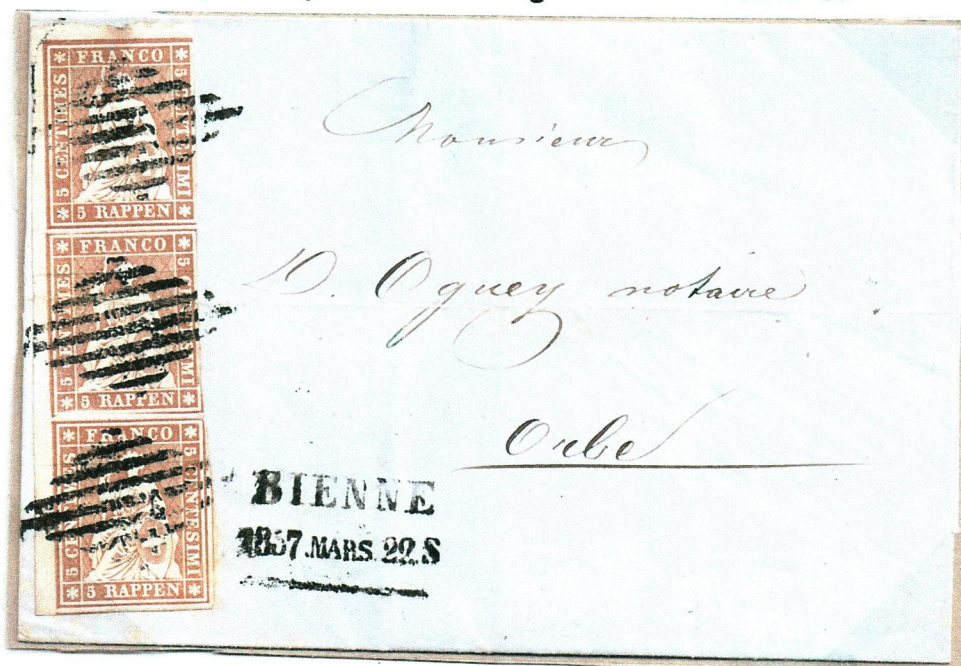 FRANCO
5 CENTIMES
5 CENTESIMI
5 RAPPEN
FRANCO
5 CENTIMES
5 CENTESIMI
5 RAPPEN
FRANCO
5 CENTIMES
5 CENTESIMI
5 RAPPEN
Monsieur
D. Oguey notaire
Orbe
BIENNE
1857.MARS.22.S